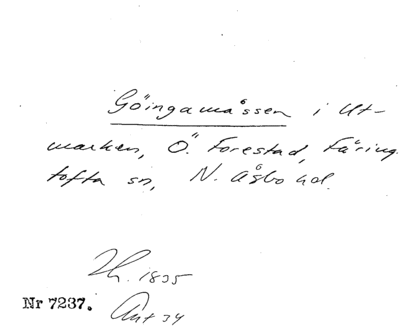 Göingamåssen i Ut-
marken, Ö. Forestad, Färing-
tofta sn, N. Åsbo hd.
1835
Nr 7237. Akt 34